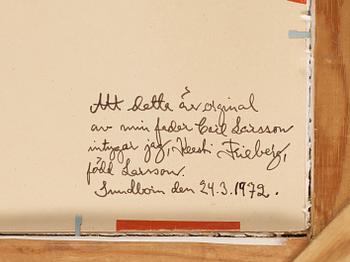 Att detta är original
av min fader Carl Larsson
intygar jag, Kersti Frieberg,
född Larsson.
Sundborn den 24.3.1972.